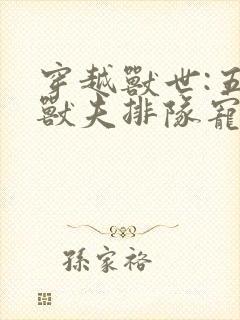 穿越獸世:五
獸夫排隊寵
孫家裕